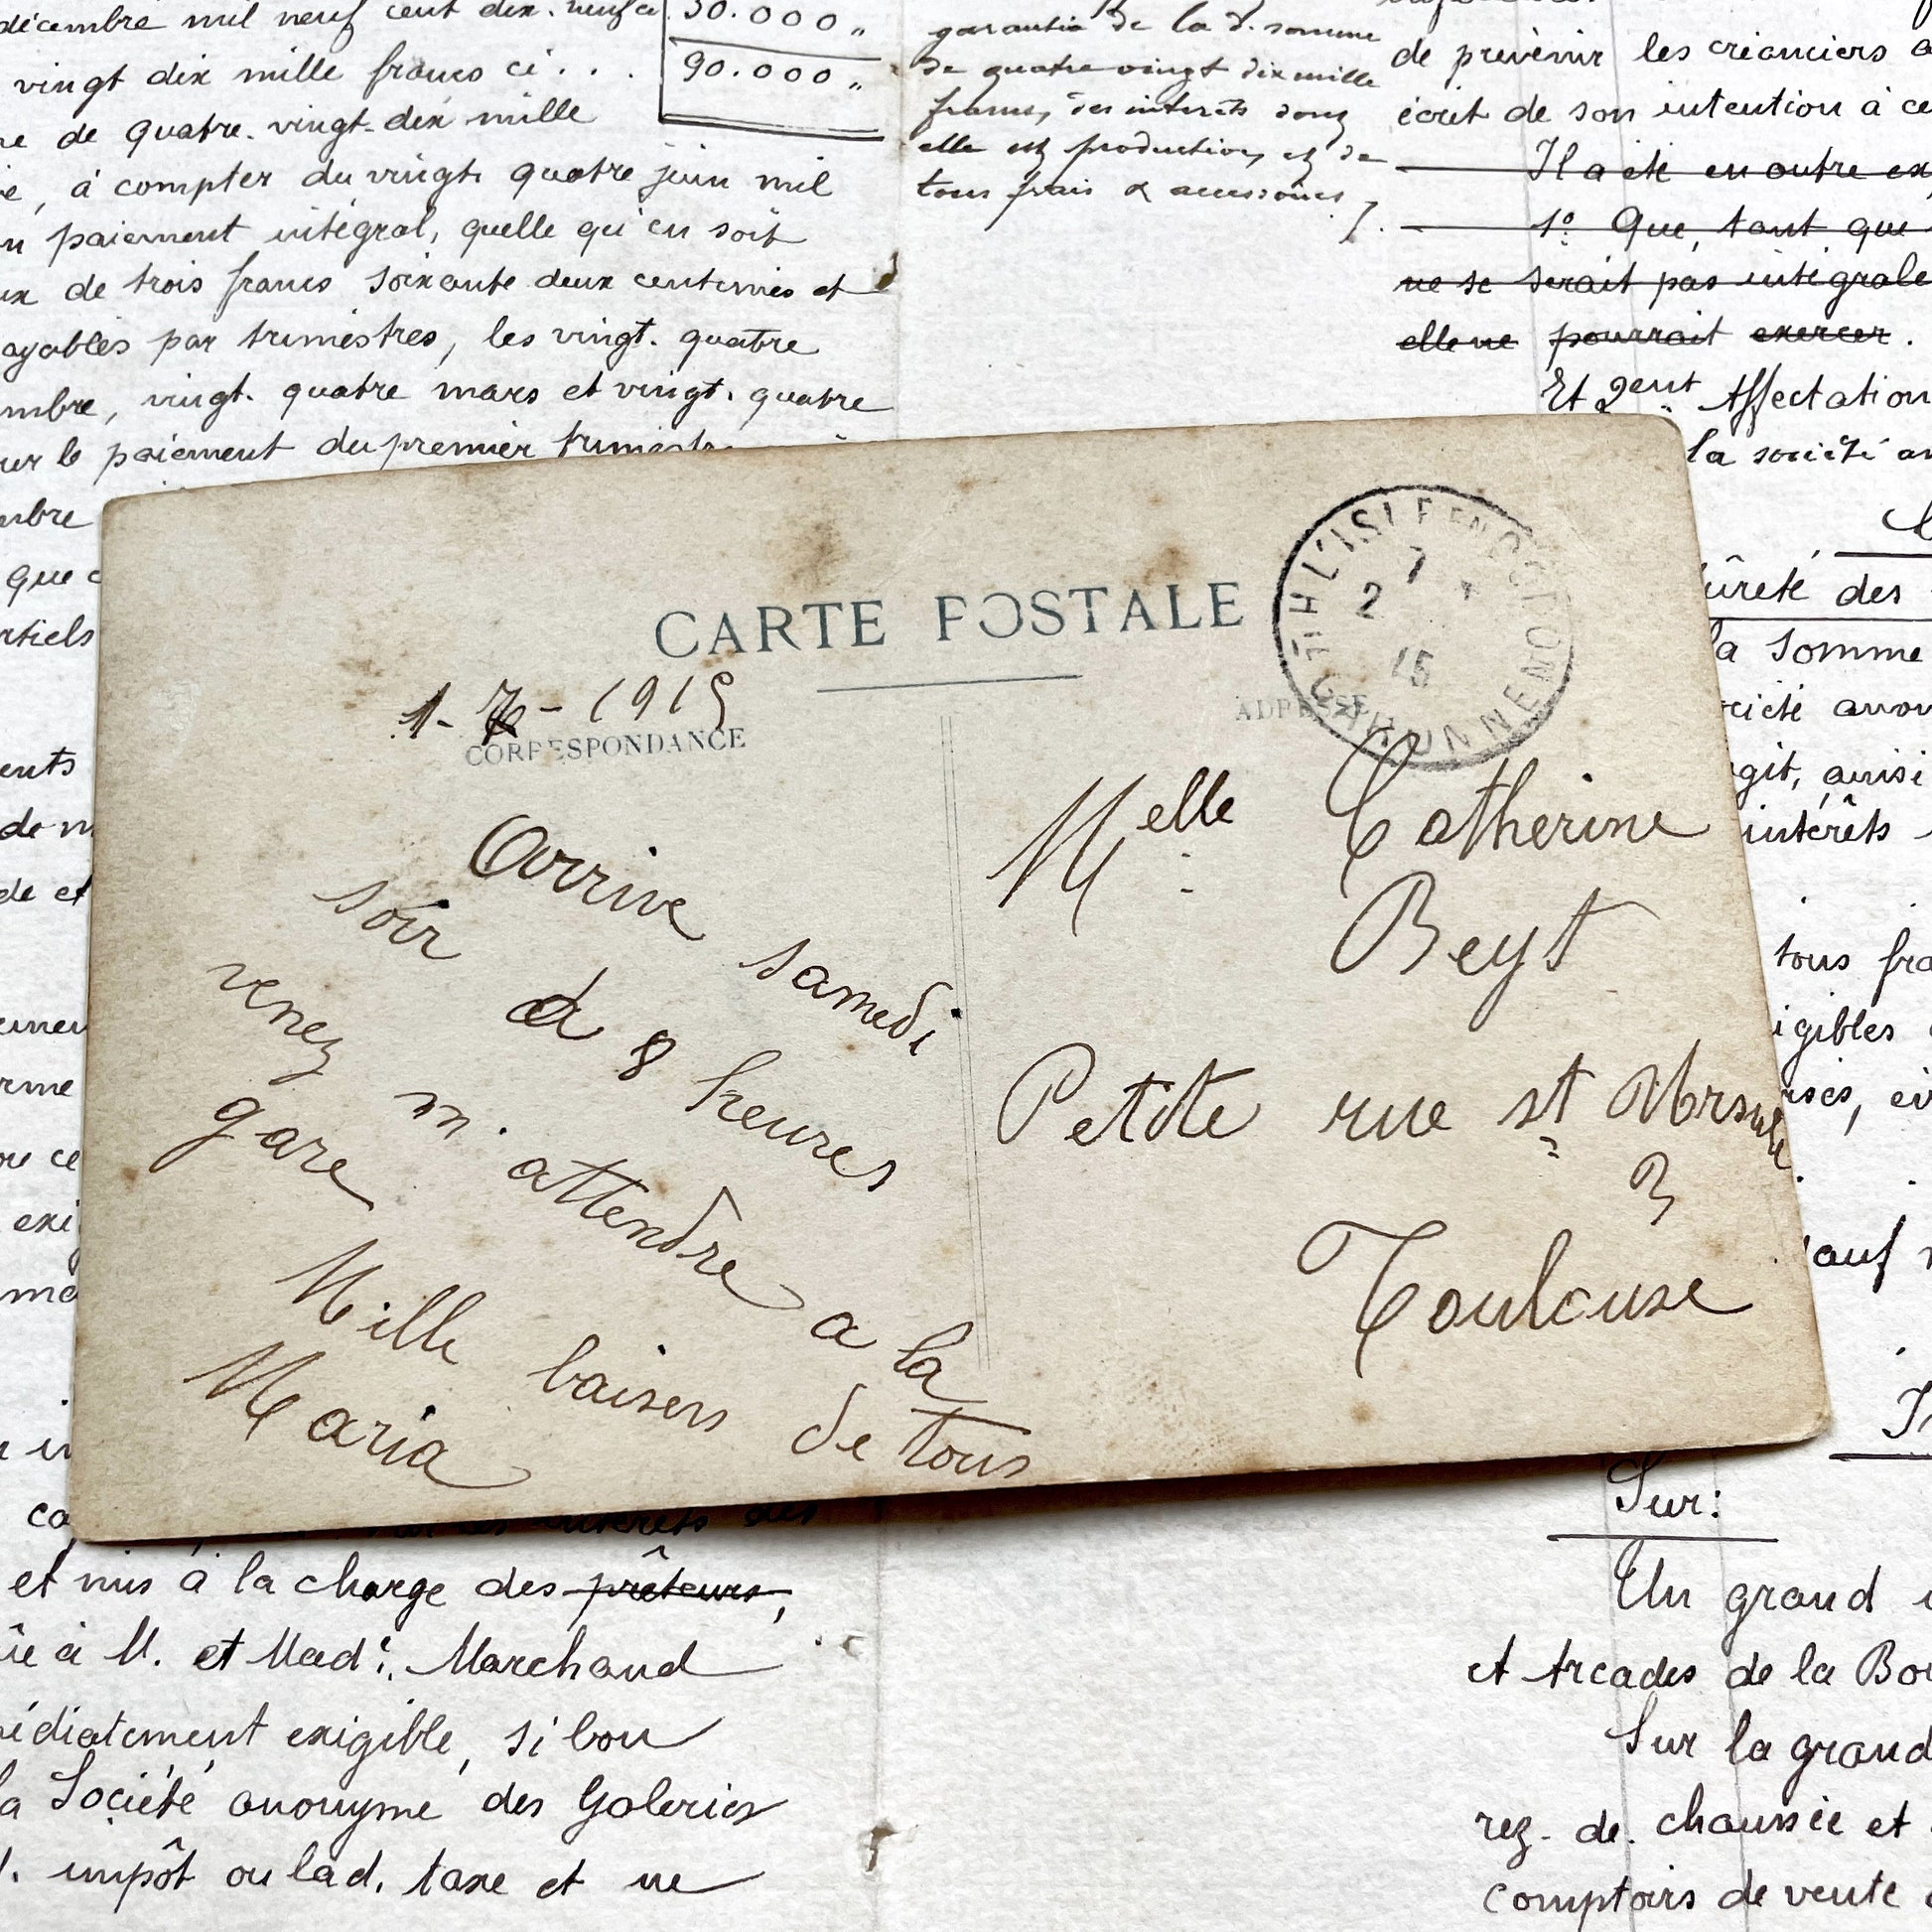 décembre mil neuf cent dix. neuf ci
30.000 "
vingt dix mille francs ci . . .
90.000 "
de quatre. vingt. dix mille
, à compter du vingt. quatre juin mil
paiement intégral, quelle qu'en soit
de trois francs soixante deux centimes et
par trimestres, les vingt. quatre
mbre, vingt. quatre mars et vingt. quatre
ur le paiement du premier trimestr
mbre
que
rtiels
garantie de la d. somme
de quatre vingt dix mille
francs, des intérêts dont
elle est productive, et de
tous frais & accessoires
de prévenir les créanciers
écrit de son intention à ce
Il a été en outre ex
1º. Que, tant que
ne se serait pas intégrale
elle ne pourrait exercer.
Et 2ent Affectation
la société an
ûreté des
la somme
ciété anon
git, ainsi
intérêts
tous fra
igibles
CARTE POSTALE
L'ISLE EN DODON
HTE GARONNE
7
2
15
1-7-1915
CORRESPONDANCE
ADRESSE
Arrive samedi
soir a 8 heures
venez m. attendre a la
gare
Mille baisers de tous
Maria
Melle Catherine
Beyt
Petite rue st Ursule
3
Toulouse
sauf
et mis à la charge des prêteurs,
à M. et Made. Marchand
édiatement exigible, si bon
la Société anonyme des Galeries
impôt ou lad. taxe et ne
Sur:
Un grand
et Arcades de la Bou
Sur la grand
rez. de. chaussée et
comptoirs de vente